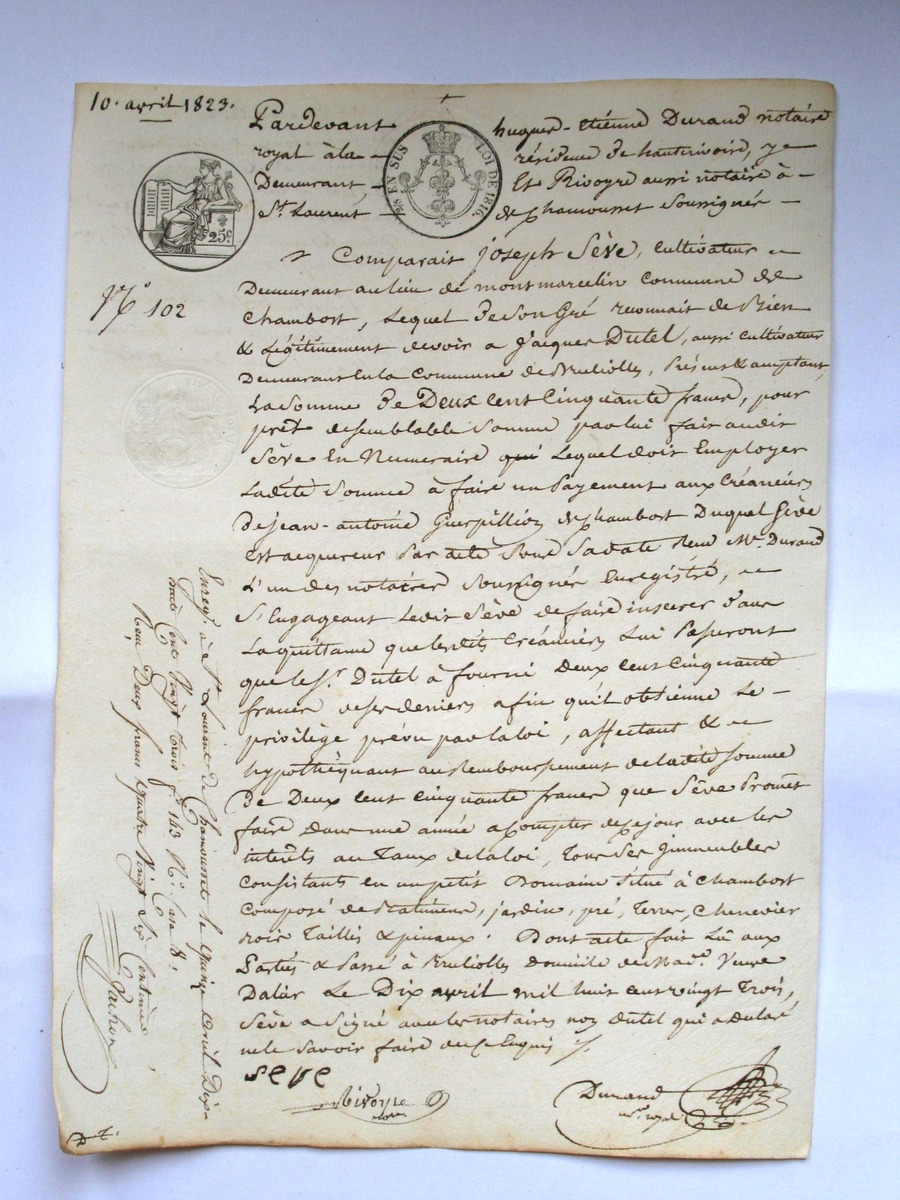 10. avril 1823.
Pardevant hugues-etiénne Durand notaire
royal à la résidence de hauterivoire, y
Demeurant Et Rivoyre aussi notaire à
St. Laurent de chamousset soussignés
EN SUS LOI DE 1816.
25c.
No. 102
Comparait joseph Sève, cultivateur
Demeurant au lieu de montmarcelin commune de
Chambost, Lequel de son Gré reconnait de Bien
& Légitimement devoir a jacques Dutel, aussi cultivateur
Demeurant en la commune de Brulliolles, présent & acceptant,
La somme de Deux cent cinquante francs, pour
prêt de semblable somme par lui fait audit
Sève En Numeraire qui Lequel doit Employer
Ladite somme à faire un payement aux créanciers
de jean-antoine Guerpillion de chambost Duquel Sève
est acquereur par acte sous sa date Reçu Me. Durand
L'un des notaires soussignés Enregistré,
s'Engageant Ledit Sève de faire inserer dans
La quittance que lesdits créanciers Lui passeront
que le Sr. Dutel à fourni Deux cent cinquante
francs de ses deniers afin qu'il obtienne Le
privilège prévu par la loi, affectant &
hypothéquant au Remboursement de ladite somme
de Deux cent cinquante francs que Sève Promet
faire dans une année a compter de ce jour avec les
interêts au Taux de la loi, Tous ses immeubles
Consistants en un petit Domaine situé à chambost
composé de Batiments, jardin, pré, Terres, chenevier
Bois Taillis & pinaux. Dont acte fait Lû aux
Parties & Passé à Brulliolles domicile de Veuve
Le Dix avril mil huit cent vingt Trois,
Sève a signé avec les notaires non Dutel qui a declaré
ne le savoir faire de ce Enquis
seve
Rivoyre
Durand
nre. royal
Enregé. à St. Laurent de Chamousset le quinze avril Dix-
huit Cent Vingt trois fo. 143 Ro. Case 8.
Reçu Deux francs quatre Vingt Six Centimes,
Vachon